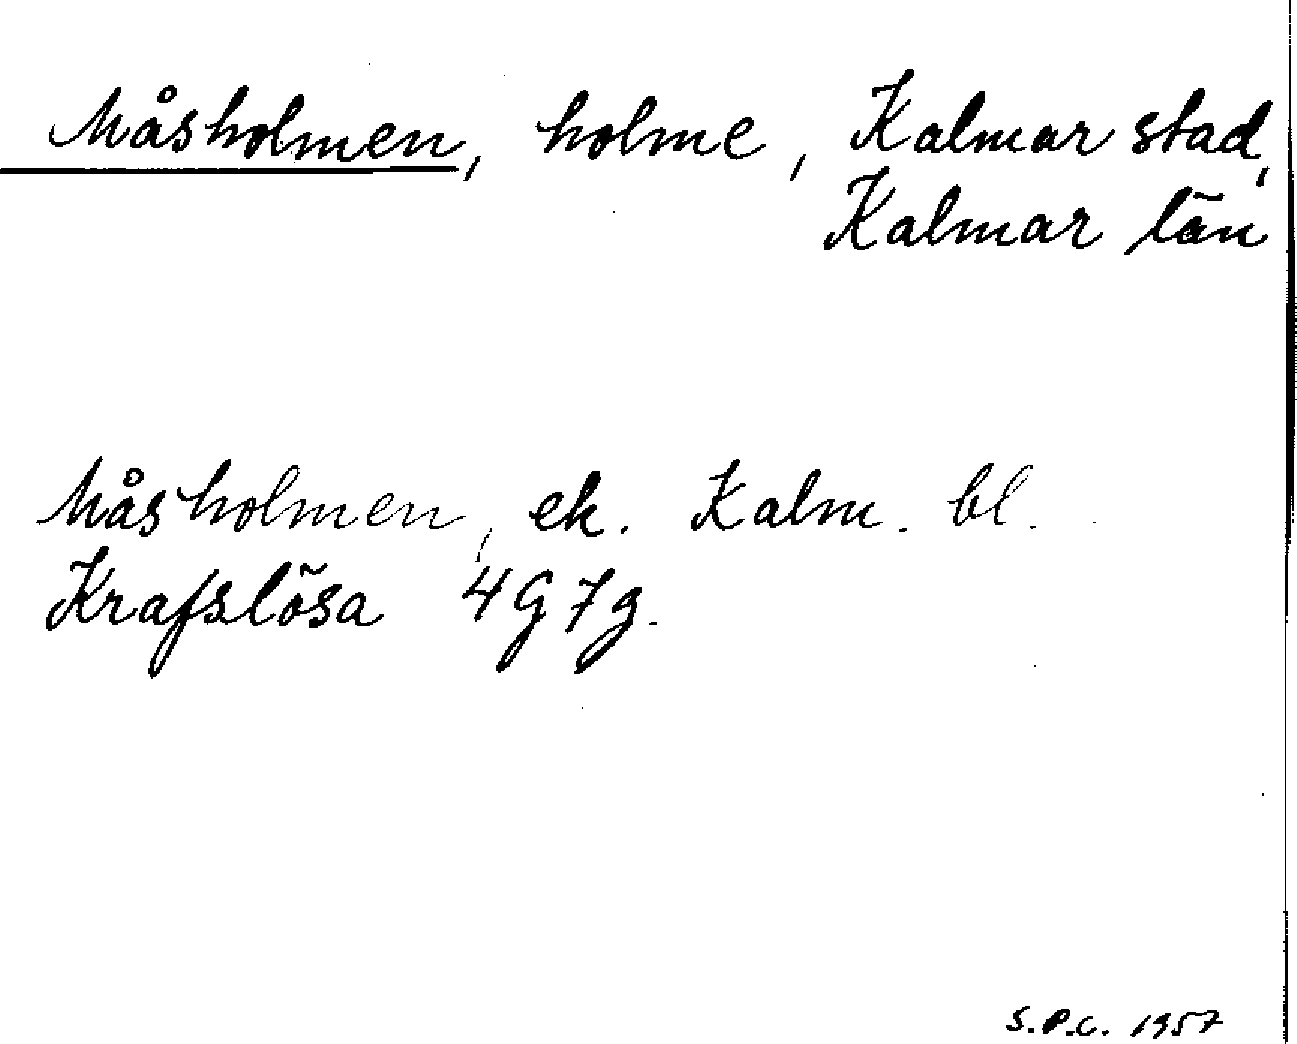 Måsholmen, holme, Kalmar stad,
Kalmar län
Måsholmen, ek. Kalm. bl.
Krafslösa 4G7g.
S.P.C. 1957